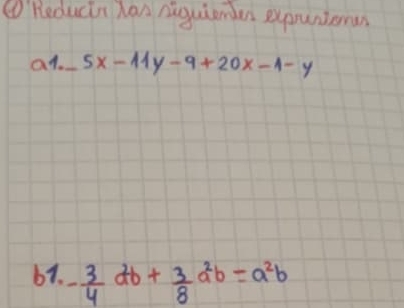 ① Reducir las siguientes expresiones
a1.- 5x - 11y - 9 + 20x - 1 - y
b1.- 3/4 a²b + 3/8 a²b - a²b